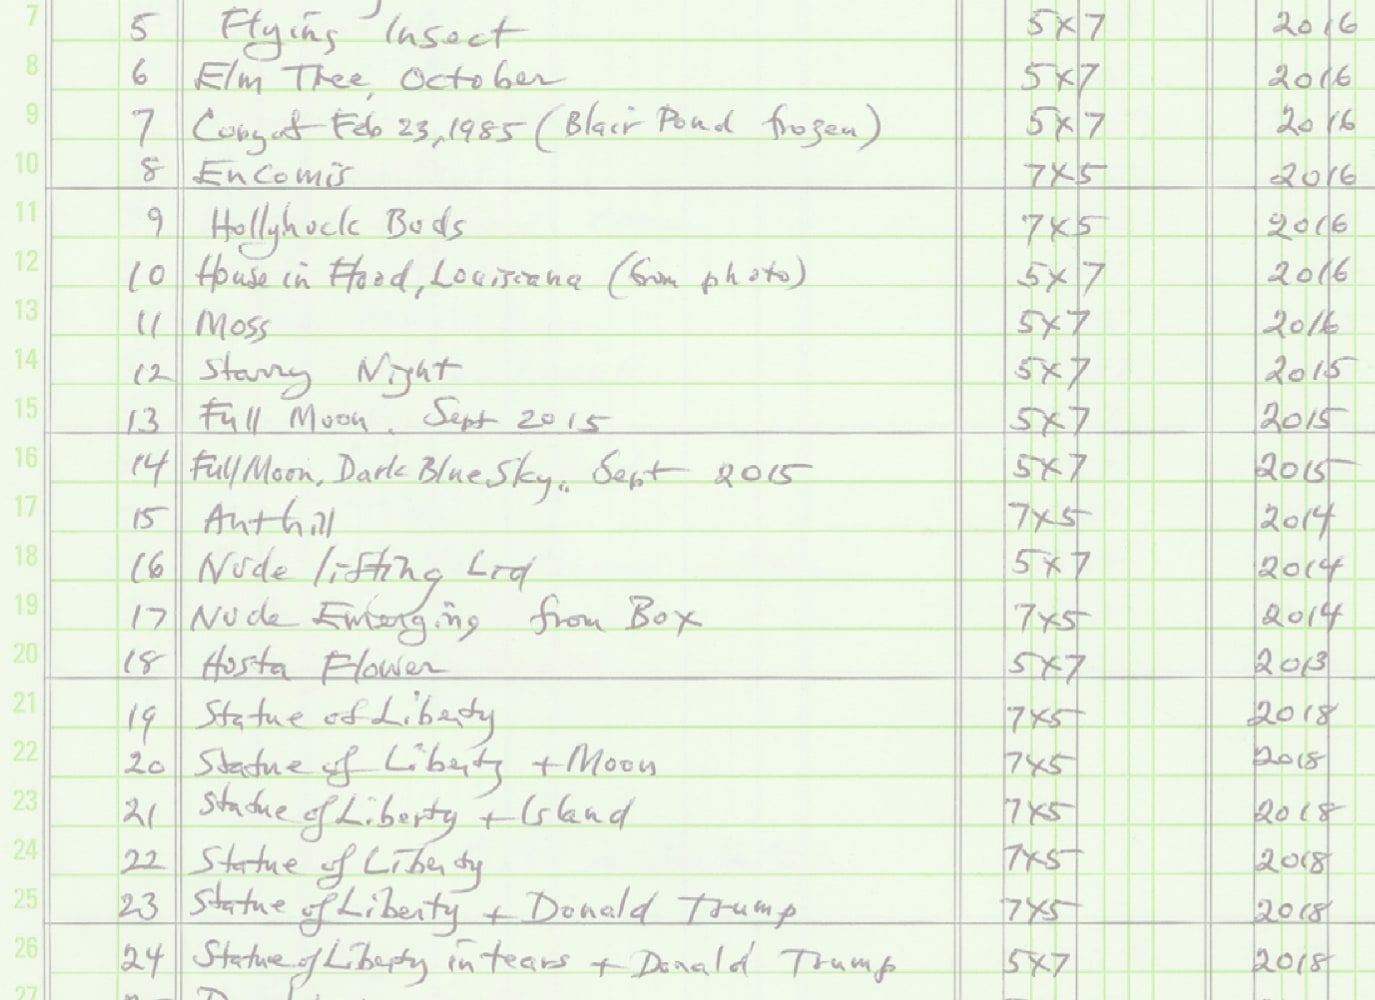 7 5 Flying Insect 5x7 2016
8 6 Elm Tree, October 5x7 2016
9 7 Feb 23, 1985 (Blair Pond frozen) 5x7 2016
10 8 Encomis 7x5 2016
11 9 Hollyhock Buds 7x5 2016
12 10 House in Flood, Louisiana (from photo) 5x7 2016
13 11 Moss 5x7 2016
14 12 Starry Night 5x7 2015
15 13 Full Moon. Sept 2015 5x7 2015
16 14 Full Moon, Dark Blue Sky, Sept 2015 5x7 2015
17 15 Anthill 7x5 2014
18 16 Nude lifting Lid 5x7 2014
19 17 Nude Emerging from Box 7x5 2014
20 18 Hosta Flower 5x7 2013
21 19 Statue of Liberty 7x5 2018
22 20 Statue of Liberty + Moon 7x5 2018
23 21 Statue of Liberty + Island 7x5 2018
24 22 Statue of Liberty 7x5 2018
25 23 Statue of Liberty + Donald Trump 7x5 2018
26 24 Statue of Liberty in tears + Donald Trump 5x7 2018
27